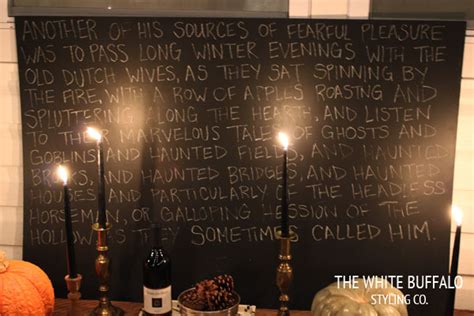 ANOTHER OF HIS SOURCES OF FEARFUL PLEASURE
WAS TO PASS LONG WINTER EVENINGS WITH THE
OLD DUTCH WIVES, AS THEY SAT SPINNING BY
THE FIRE, WITH A ROW OF APPLES ROASTING AND
SPLUTTERING ALONG THE HEARTH, AND LISTEN
TO THEIR MARVELOUS TALES OF GHOSTS AND
GOBLINS, AND HAUNTED FIELDS, AND HAUNTED
AND HAUNTED BRIDGES, AND HAUNTED
HOUSES AND PARTICULARLY OF THE HEADLESS
HORSEMAN, OR GALLOPING HESSION OF THE
HOLLOW AS THEY SOMETIMES CALLED HIM.
THE WHITE BUFFALO
STYLING CO.